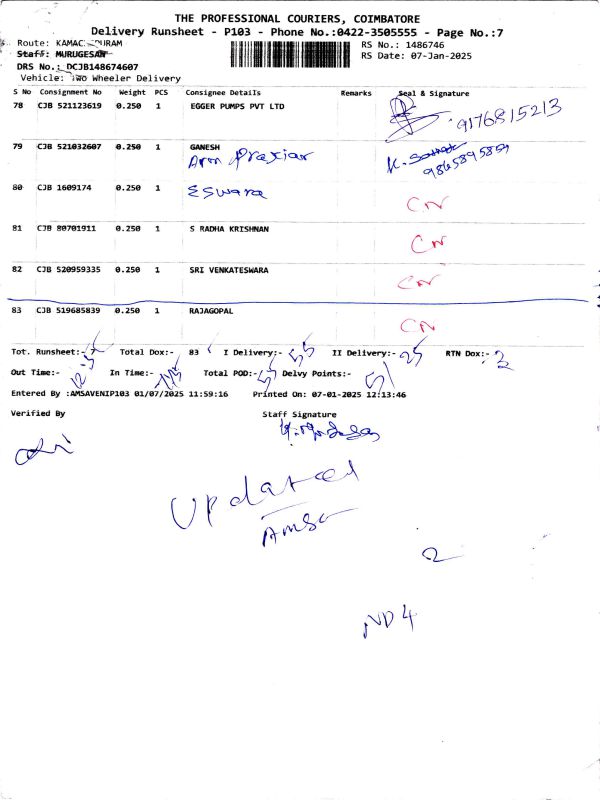 THE PROFESSIONAL COURIERS, COIMBATORE
Delivery Runsheet - P103 - Phone No.:0422-3505555 - Page No.:7
Route: KAMAC URAM
RS No.: 1486746
Staff: MURUGESAN
RS Date: 07-Jan-2025
DRS No.: DCJB148674607
Vehicle: Two Wheeler Delivery
S No Consignment No Weight PCS Consignee Details Remarks Seal & Signature
78 CJB 521123619 0.250 1 EGGER PUMPS PVT LTD 9176815213
79 CJB 521032607 0.250 1 GANESH
9865895859
80 CJB 1609174 0.250 1 Eswara CN
81 CJB 80701911 0.250 1 S RADHA KRISHNAN CN
82 CJB 520959335 0.250 1 SRI VENKATESWARA CN
83 CJB 519685839 0.250 1 RAJAGOPAL CN
Tot. Runsheet:- Total Dox:- 83 I Delivery:- 55 II Delivery:- 25 RTN Dox:- 2
Out Time:- In Time:- Total POD:- 55 Delvy Points:- 51
Entered By :AMSAVENIP103 01/07/2025 11:59:16 Printed On: 07-01-2025 12:13:46
Verified By Staff Signature
Updated
Amsa
2
ND 4